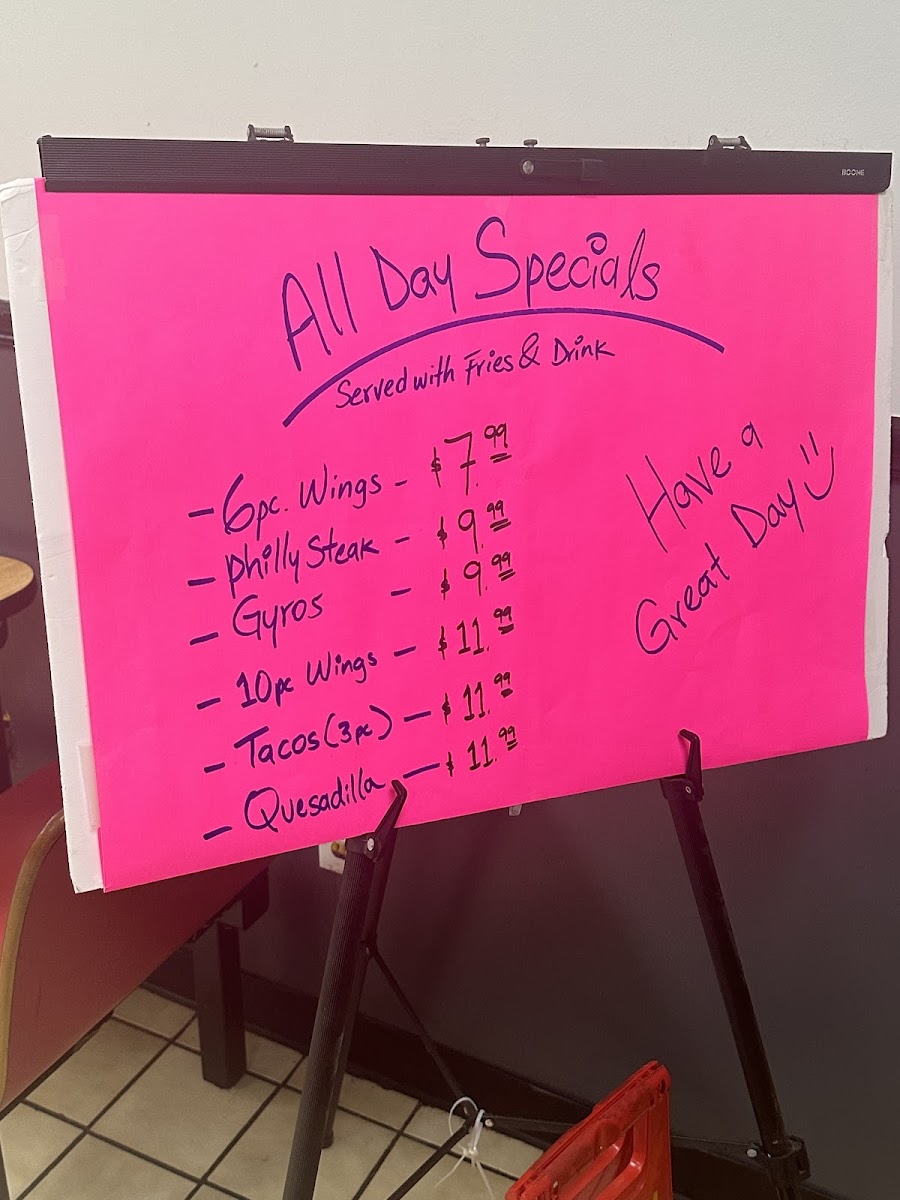 BOONE
All Day Specials
Served with Fries & Drink
- 6pc. Wings - $7.99
- Philly Steak - $9.99
- Gyros - $9.99
- 10pc Wings - $11.99
- Tacos (3pc) - $11.99
- Quesadilla - $11.99
Have a
Great Day